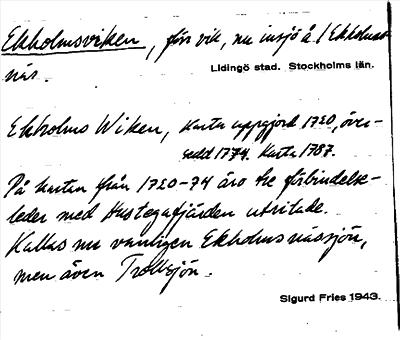 Ekholmsviken, förr vik, nu insjö å / Ekholms-
näs.
Lidingö stad. Stockholms län.
Ekholms Wiken, karta uppgjord 1720, över-
sedd 1774. Karta 1787.
På kartan från 1720-74 äro tre förbindelse-
leder med Hustegafjärden utritade.
Kallas nu vanligen Ekholmsnässjön,
men även Trollsjön.
Sigurd Fries 1943.